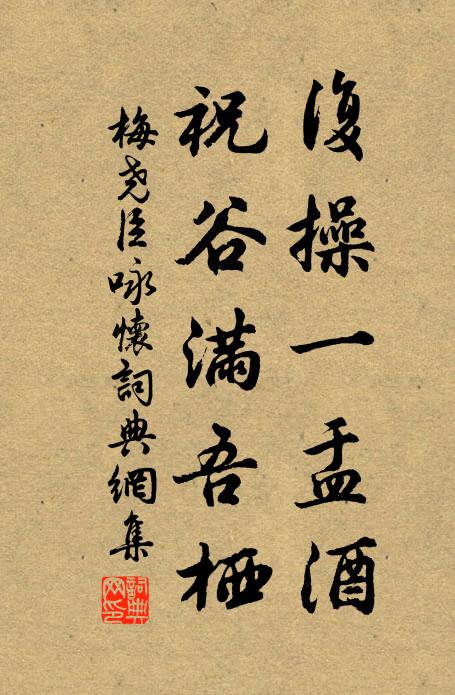 復操一盂酒
祝谷滿吾栖
梅堯臣詠懷詞典網集
詞典網印